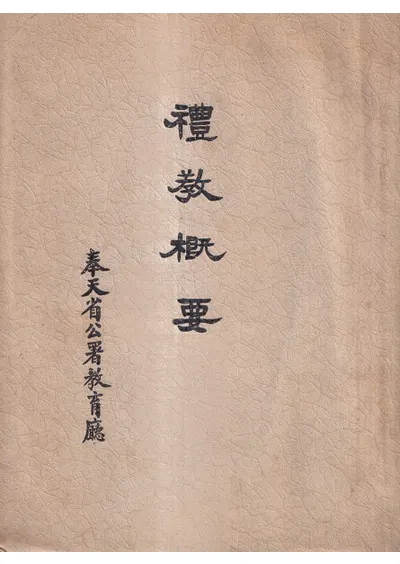 禮教概要
奉天省公署教育廳